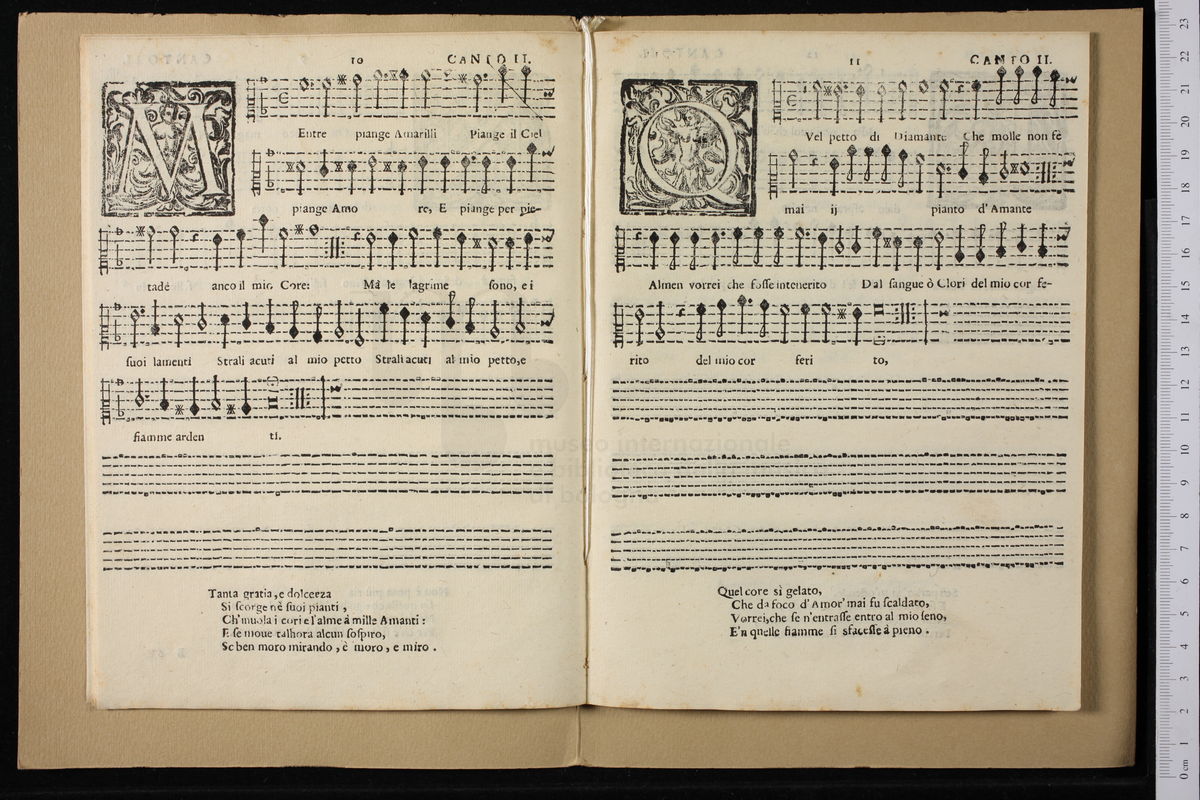 10 CANTO II.
M
Entre piange Amarilli Piange il Ciel
piange Amo re, E piange per pie-
tade anco il mio Core: Ma le lagrime sono, e i
suoi lamenti Strali acuti al mio petto Strali acuti al mio petto, e
fiamme arden ti.
Tanta gratia, e dolcezza
Si scorge nè suoi pianti,
Ch'inuola i cori e l'alme à mille Amanti:
E se moue talhora alcun sospiro,
Se ben moro mirando, è moro, e miro.
11 CANTO II.
Q
Vel petto di Diamante Che molle non fè
mai ij pianto d'Amante
Almen vorrei che fosse intenerito Dal sangue ò Clori del mio cor fe-
rito del mio cor feri to,
Quel core sì gelato,
Che da foco d'Amor' mai fu scaldato,
Vorrei, che se n'entrasse entro al mio seno,
E'n quelle fiamme si sfacesse à pieno.
museo internazionale
di bologna
0 cm 1 2 3 4 5 6 7 8 9 10 11 12 13 14 15 16 17 18 19 20 21 22 23